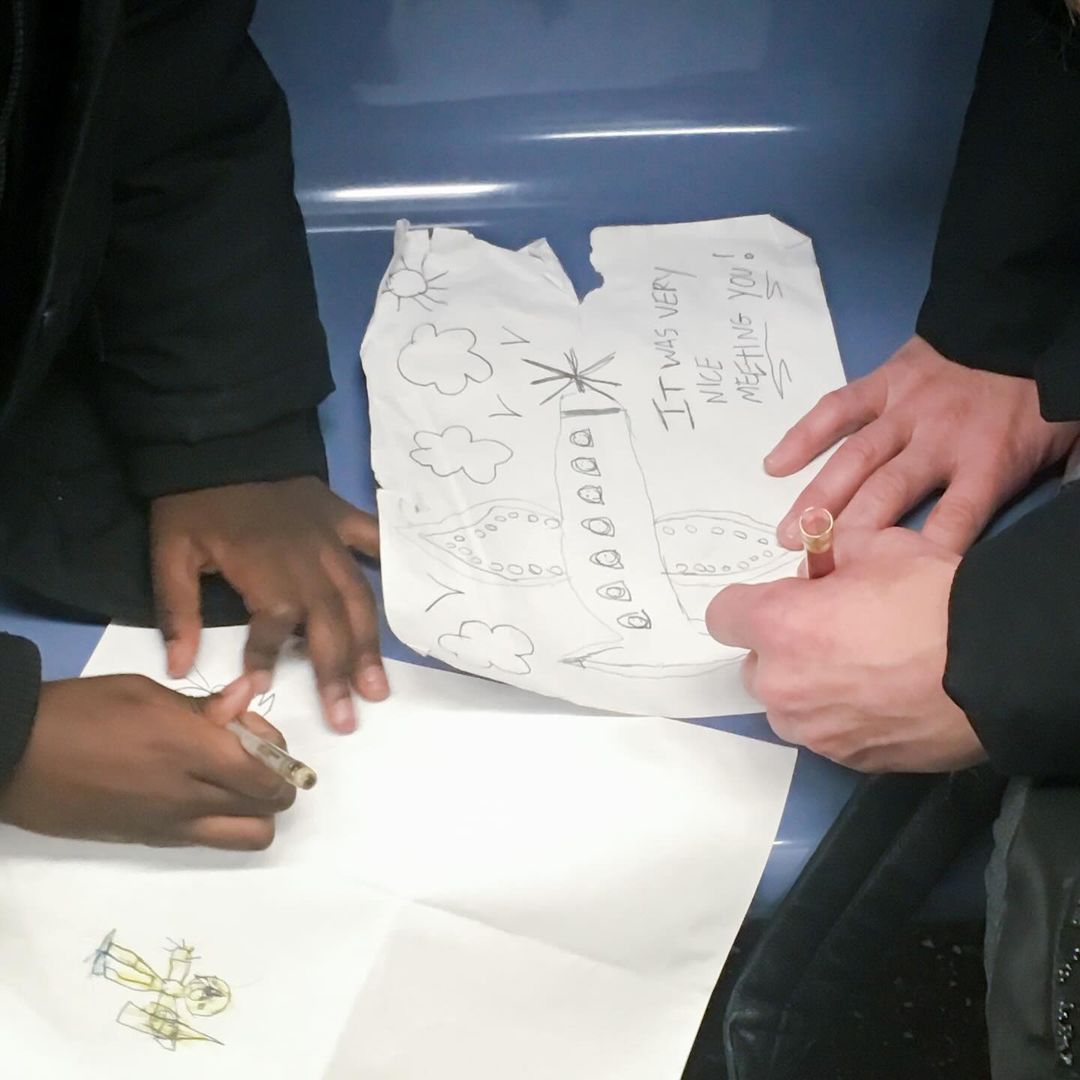 IT WAS VERY
NICE
MEETING YOU!